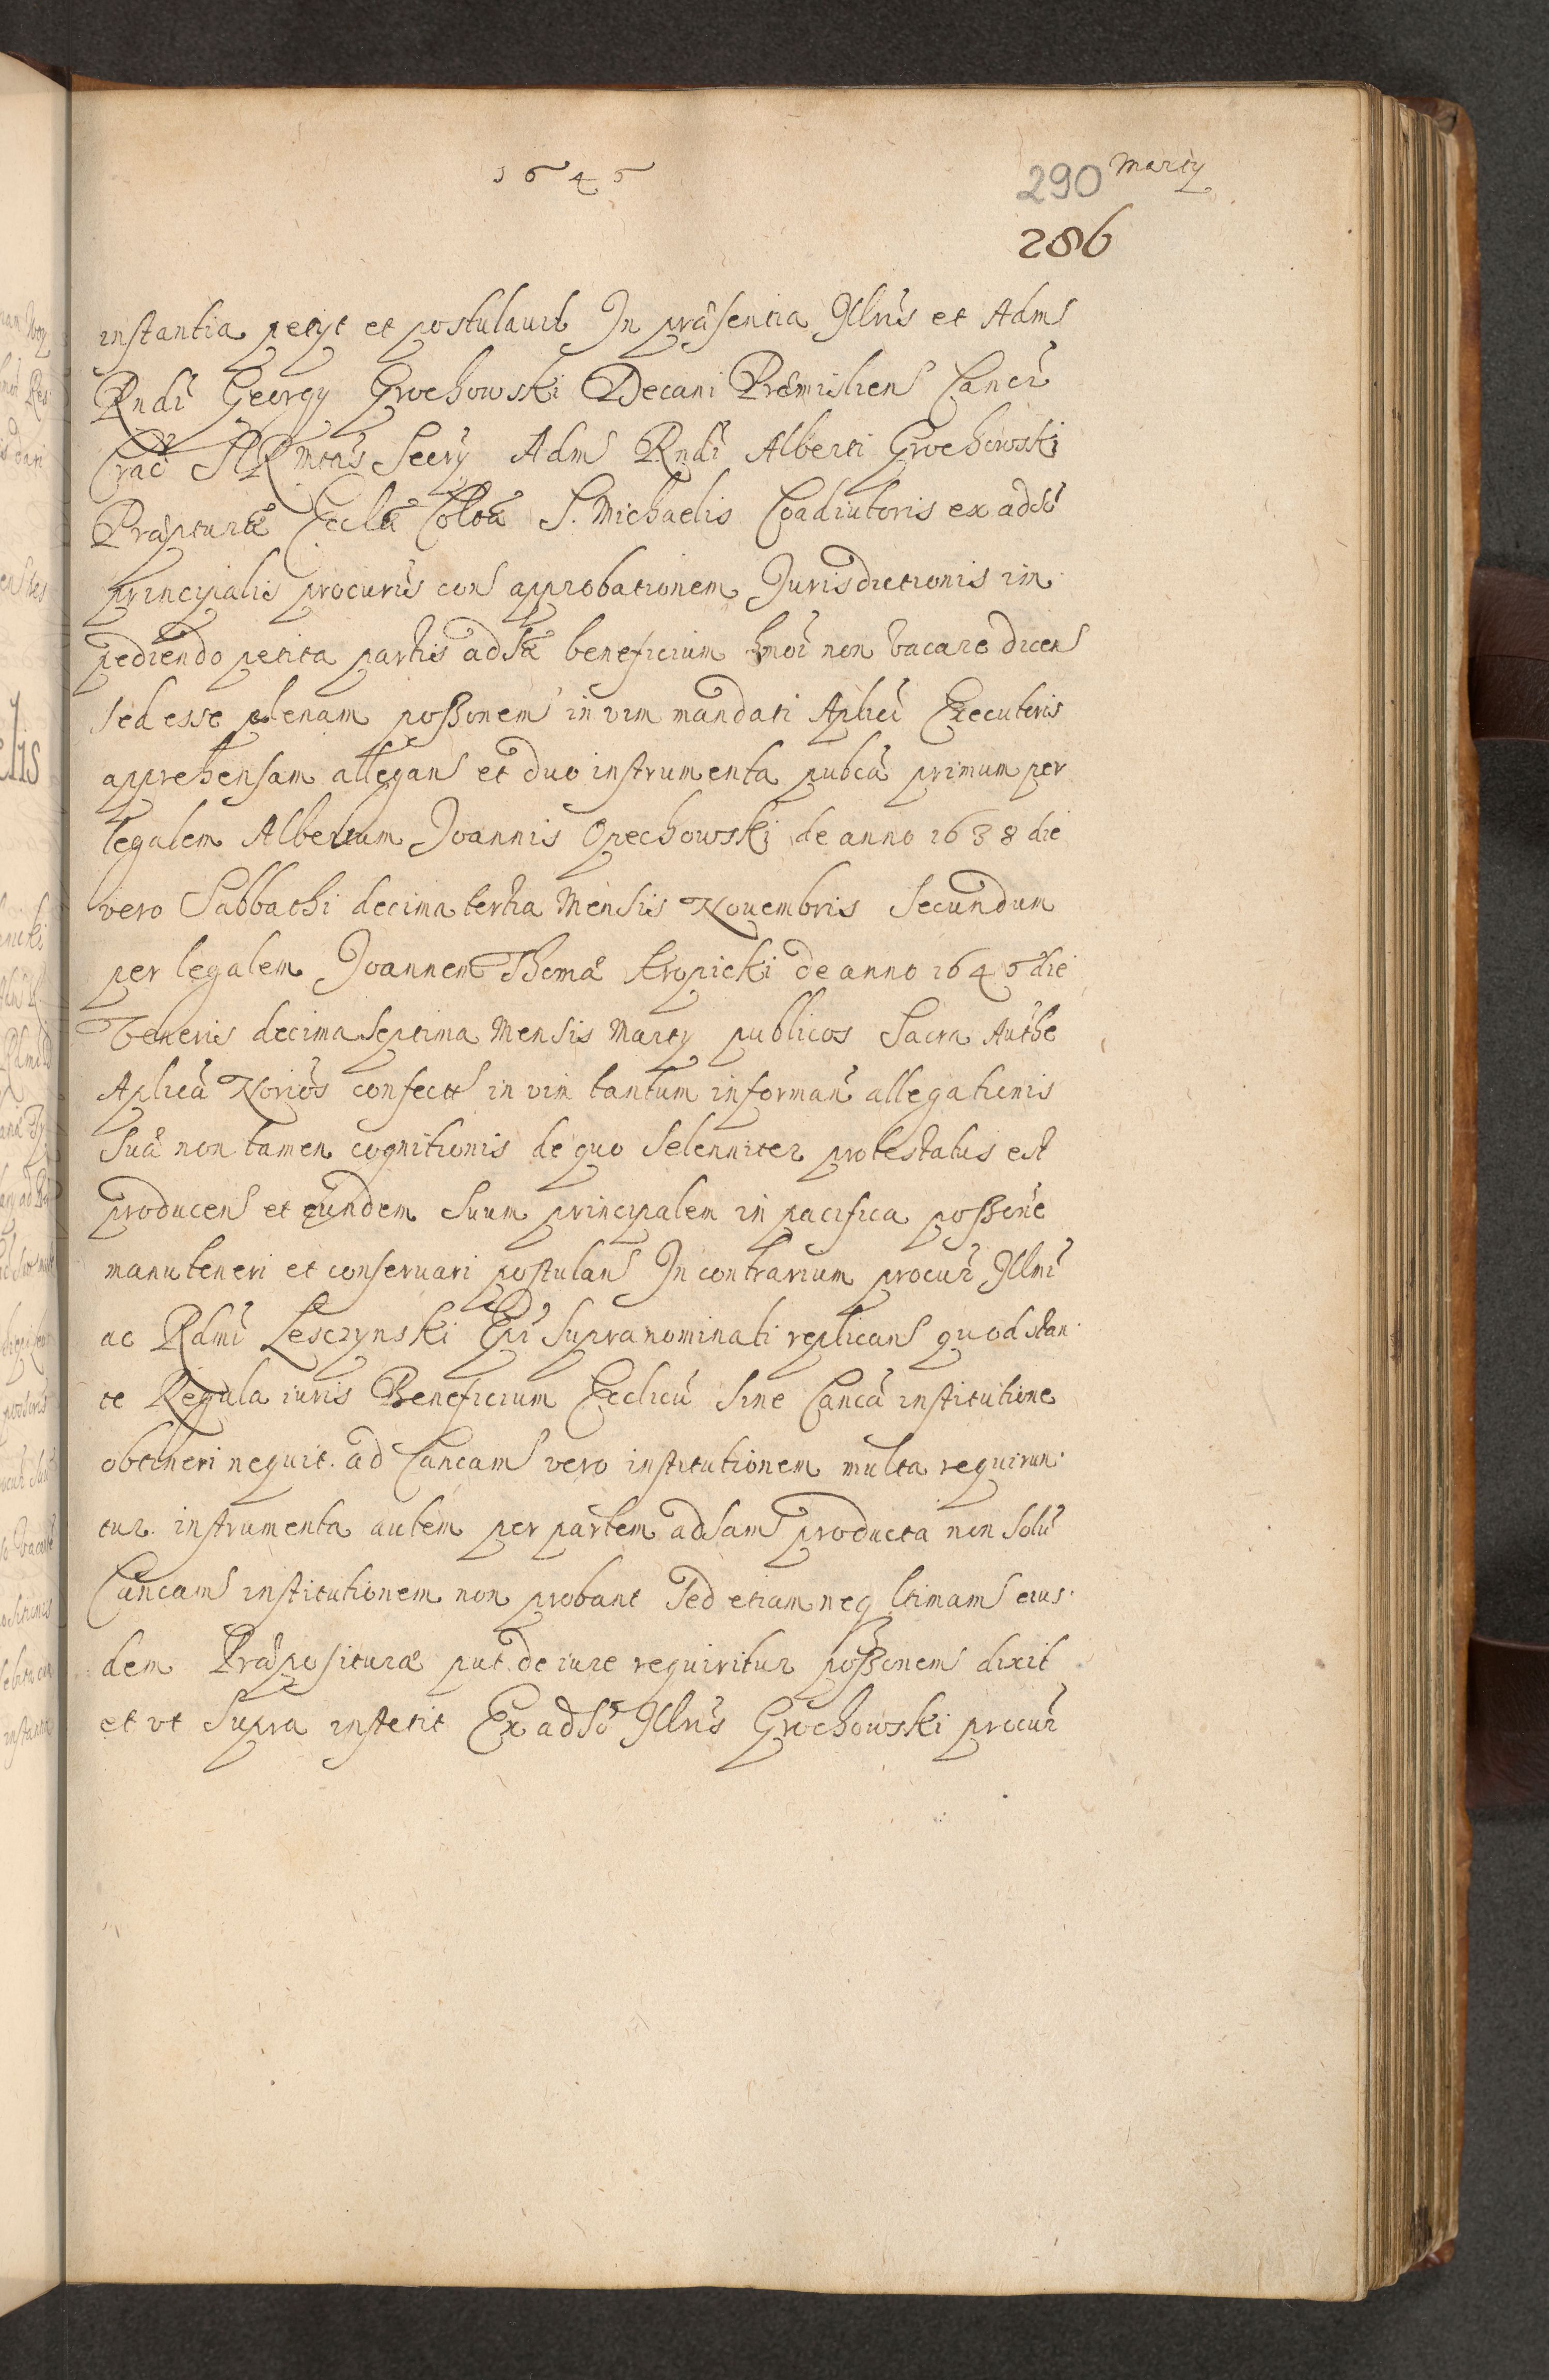 1645
290 Marty
286
instantia petyt et postulauit In præsentia Illris et Adm
Rndi Georgy Grochowski Decani Præmislien Canci
Crac SRMttis Secry Adm Rndi Alberti Grochowski
Præpturæ Eccle Colltæ S. Michaelis Coadiutoris ex adso
principalis procuris con approbationem Jurisdictionis im
pediendo petita partis adsæ beneficium hmoi non vacare dicens
sed esse plenam possonem in vim mandati Aplici Executoris
apprehensam allegans et duo instrumenta publca primum per
legalem Albertum Joannis Opechowski de anno 1638 die
vero Sabbathi decima tertia Mensis Nouembris Secundum
per legalem Joannem Thomæ Kropicki de anno 1645 die
Veneris decima septima Mensis Marty publicos Sacra Authe
Aplica Norios confect in vim tantum informan allegationis
suæ non tamen cognitionis de quo solenniter protestatus est
producens et eundem suum principalem in pacifica possone
manuteneri et conseruari postulans In contrarium procur Illmi
ac Rdmi Lesczynski Epi supranominati replicans quod stan
te Regula iuris Beneficium Ecclicu sine Canca institutione
obtineri nequit. ad Cancam vero institutionem multa requirun
tur. instrumenta autem per partem adsam producta non solu
Cancam institutionem non probant sed etiam neq ltimam eius
dem Præpositura put de iure requiritur possonem dixit
et vt supra institit Ex adso Illris Grochowski procur